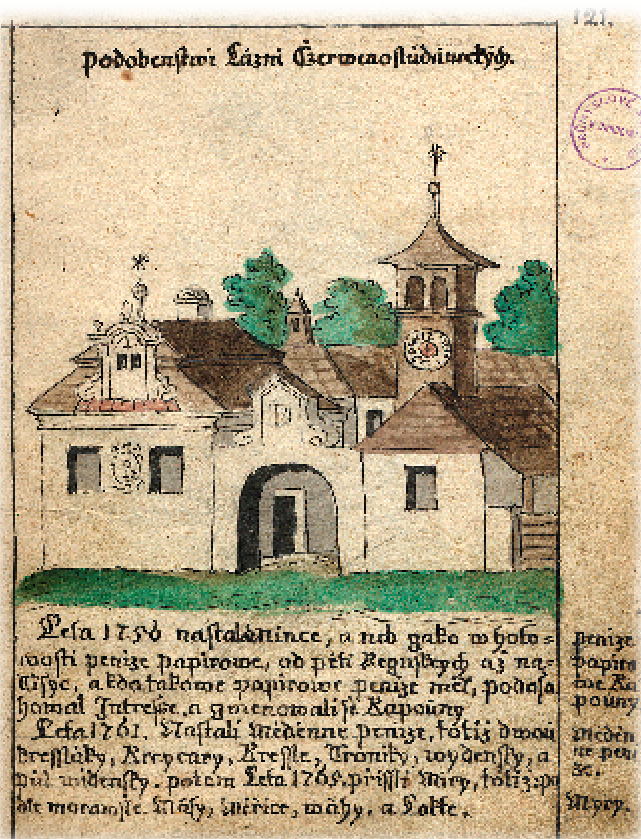 121.
Podobenstwi Lázni Czerwenostudáneckých.
Leta 1756 nastala Mince, a neb gako w hoto=
wosti penize papirowe, od pěti Regnskych až na=
Tisyc, a kdo takowe papirowe penize měl, podosa
howal Intresse, a gmenowali se Kapouny
Leta 1761. Nastali Měděnne penize, totiž dwou
kresslaky, Kreycary, Kressle, Troniky, wydensky, a
půl widensky. potom Leta 1765. přissli Miry, totiž: po
dle morawsse. Másy, měřice, wáhy, a Lokte.
penize
papiro
powe Ka
pouny
Meděn
ne pen
se.
Myry.